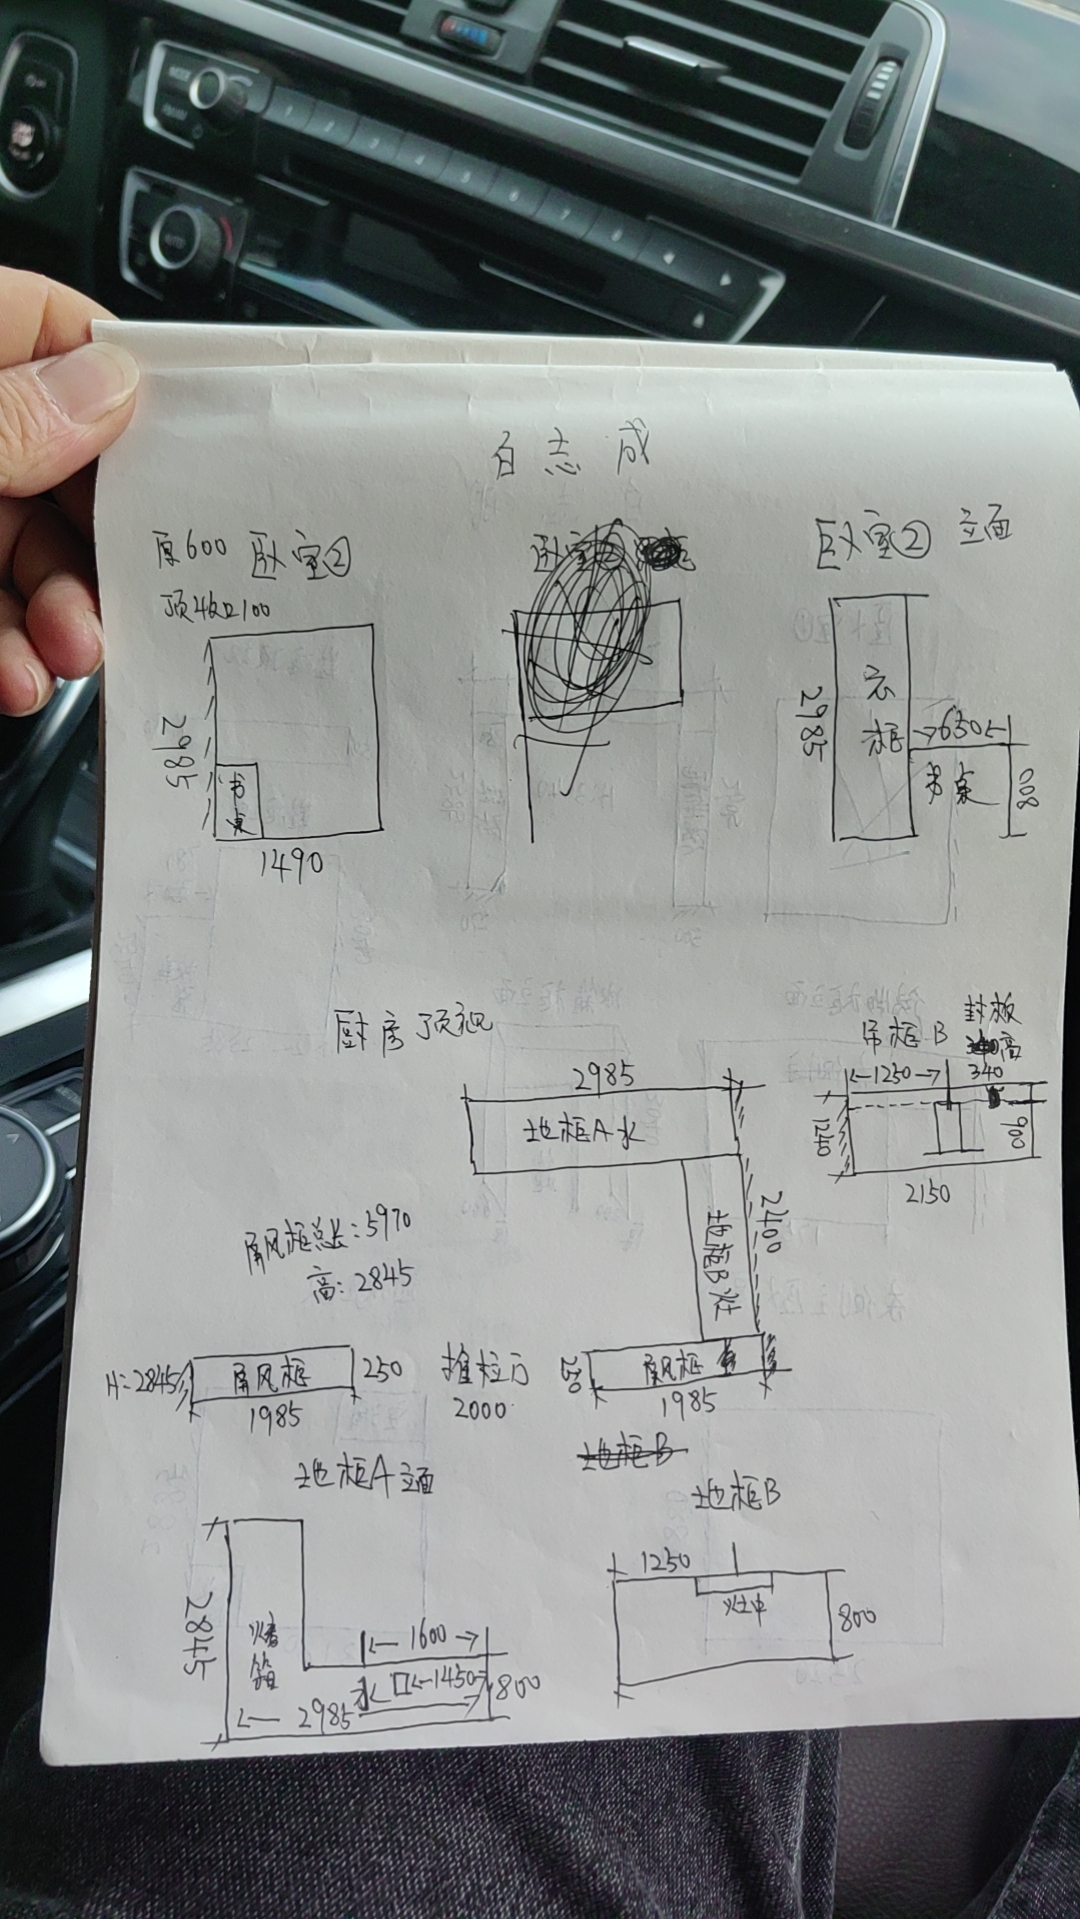 白志成
厚600 卧室②
顶收口100
2985
书桌
1490
卧室②
卧室② 立面
2985
衣柜
650
书桌
800
厨房顶视
2985
地柜A水
地柜B灶
2400
吊柜B 封板高
1250 340
1240
900
2150
屏风柜总长:5970
高:2845
H=2845
屏风柜
250
1985
推拉门
2000
250
屏风柜
1985
地柜B
地柜A立面
地柜B
2845
烤箱
1600
水 1450
2985
800
1250
灶中
800
MODE
AUTO
1
2
3
4
5
6
7
8